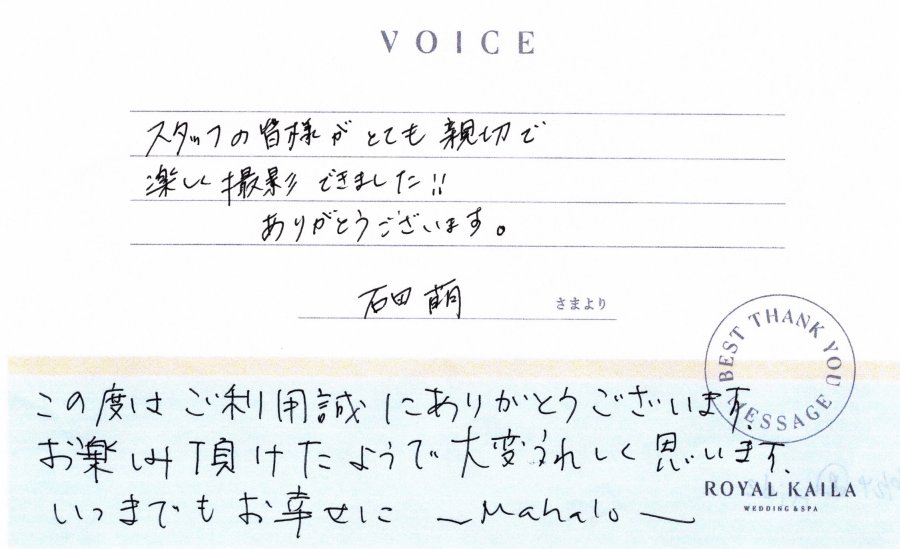 VOICE
スタッフの皆様がとても親切で
楽しく撮影できました!!
ありがとうございます。
石田 萌 さまより
BEST THANK YOU MESSAGE
この度はご利用誠にありがとうございます。
お楽しみ頂けたようで大変うれしく思います。
いつまでもお幸せに 〜Mahalo〜
ROYAL KAILA
WEDDING & SPA